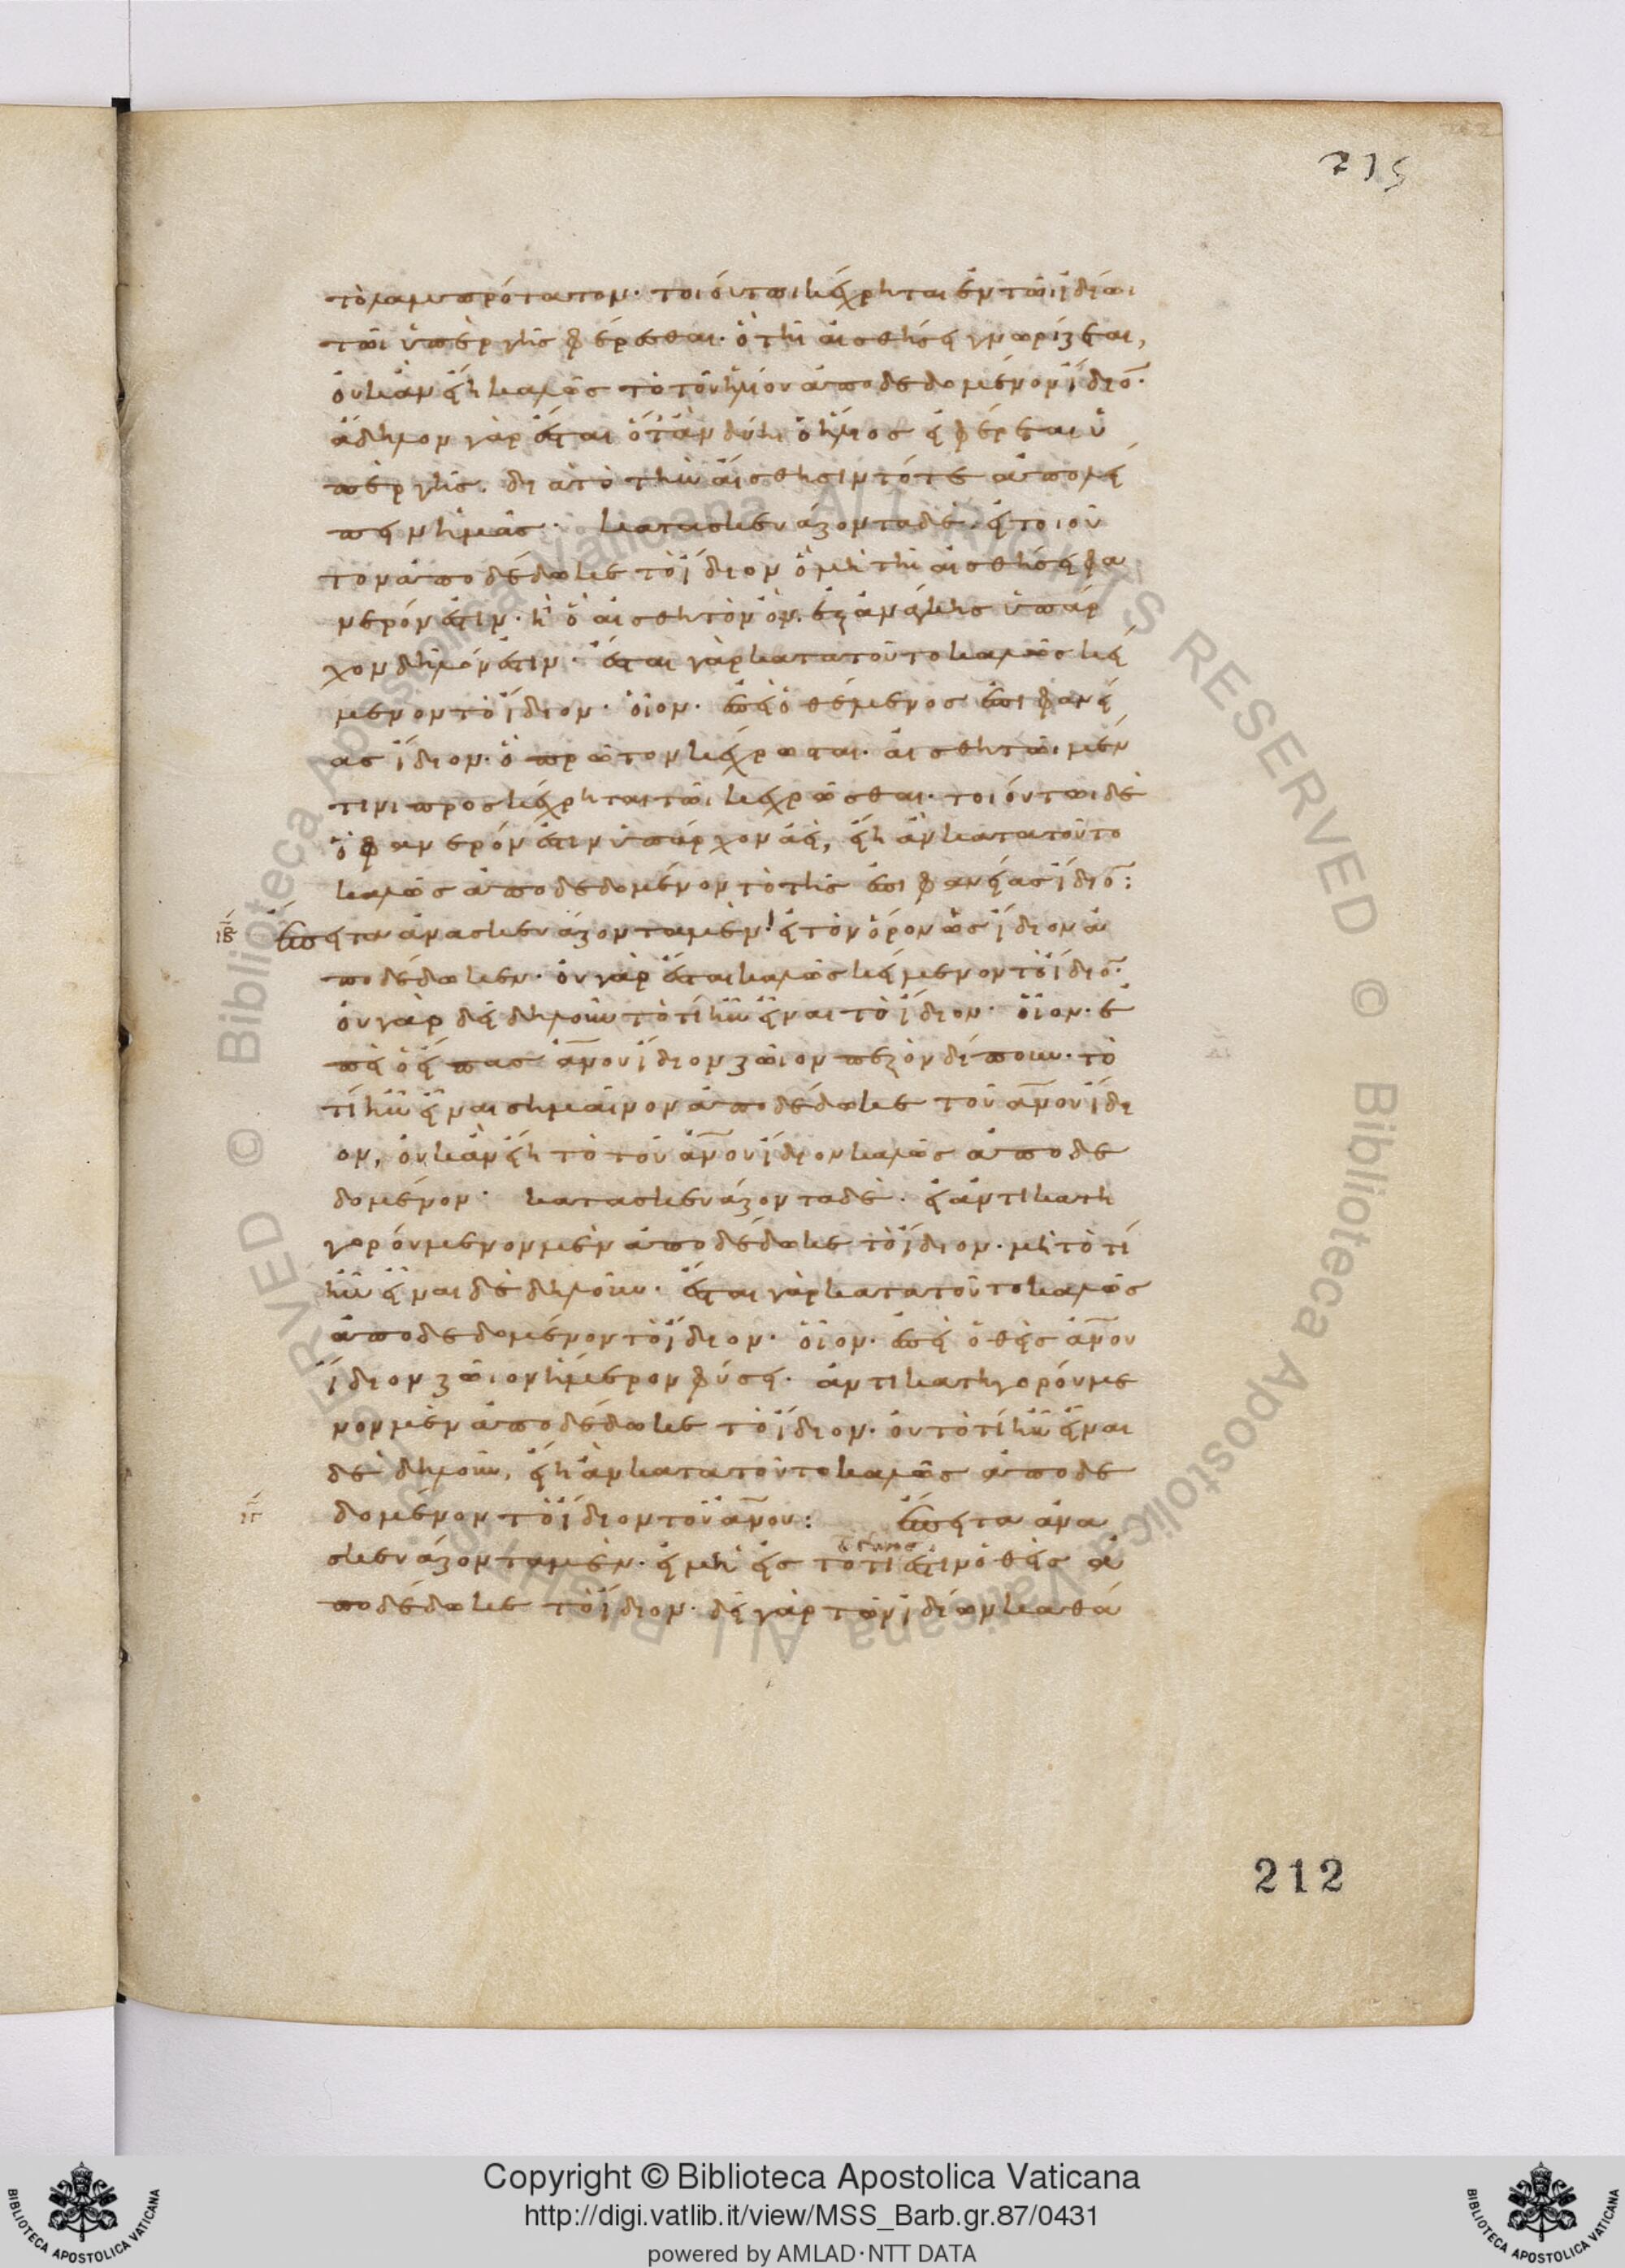 215
τὸ λαμπρότατον· τοιούτωι κέχρηται ἐν τῶι ἰδίωι
τῶι ὑπὲρ γῆς φέρεσθαι· ὃ τῆι αἰσθήσει γνωρίζεται,
οὐκ ἂν εἴη καλῶς τὸ τοῦ ἡλίου ἀποδεδομένον ἴδιο̅·
ἄδηλον γὰρ ἔσται ὅταν δύηι ὁ ἥλιος εἰ φέρεται ὑ
πὲρ γῆς. διὰ τὸ τὴν αἴσθησιν τότε ἀπολεί
πειν ἡμᾶς· κατασκευάζοντα δὲ. εἰ τοιοῦ
τον ἀποδέδωκε τὸ ἴδιον ὃ μὴ τῆι αἰσθήσει φα
νερόν ἐστιν· ἢ ὃ αἰσθητὸν ὂν. ἐξ ἀνάγκης ὑπάρ
χον δῆλόν ἐστιν· ἔσται γὰρ κατα τοῦτο καλῶς κεί
μενον τὸ ἴδιον· οἷον· ἐπεὶ ὁ θέμενος ἐπιφανεί
ας ἴδιον· ὃ πρῶτον κέχρωσται. αἰσθητῶι μέν
τινι προσκέχρηται τῶι κεχρῶσθαι· τοιούτωι δὲ
ὃ φανερόν ἐστιν ὑπάρχον ἀεὶ, εἴη ἂν κατα τοῦτο
καλῶς ἀποδεδομένον τὸ τῆς ἐπιφανείας ἴδιο̅:
ιβ ἔπειτα ἀνασκευάζοντα μὲν· εἰ τὸν ὅρον ὡς ἴδιον ἀ
ποδέδωκεν· οὐ γὰρ ἔσται καλῶς κείμενον τὸ ἴδιο̅·
οὐ γὰρ δεῖ δηλοῦν τὸ τί ἦν εἶναι τὸ ἴδιον· οἷον· ἐ
πεὶ ὁ εἴπας α̅νου ἴδιον ζῶιον πεζὸν δίπουν· τὸ
τί ἦν εἶναι σημαῖνον ἀποδέδωκε τοῦ α̅νου ἴδι
ον, οὐκ ἂν εἴη τὸ τοῦ α̅νου ἴδιον καλῶς ἀποδε
δομένον· κατασκευάζοντα δὲ. εἰ ἀντικατη
γορούμενον μὲν ἀποδέδωκε τὸ ἴδιον· μὴ τὸ τί
ἦν εἶναι δὲ δηλοῦν· ἔσται γὰρ κατα τοῦτο καλῶς
ἀποδεδομένον τὸ ἴδιον· οἷον· ἐπεὶ ὁ θεὶς α̅νου
ἴδιον ζῶιον ἥμερον φύσει· ἀντικατηγορούμε
νον μὲν ἀποδέδωκε τὸ ἴδιον· οὐ τὸ τί ἦν εἶναι
δὲ δηλοῦν, εἴη ἂν κατα τοῦτο καλῶς ἀποδε
ιγ δομένον τὸ ἴδιον τοῦ α̅νου: ἔπειτα ἀνα
σκευάζοντα μὲν· εἰ μὴ εἰς τὸ τί ἐστιν ὁ θεὶς ἀ
ποδέδωκε τὸ ἴδιον· δεῖ γὰρ τῶν ἰδίων καθά
212
Copyright © Biblioteca Apostolica Vaticana
http://digi.vatlib.it/view/MSS_Barb.gr.87/0431
powered by AMLAD·NTT DATA